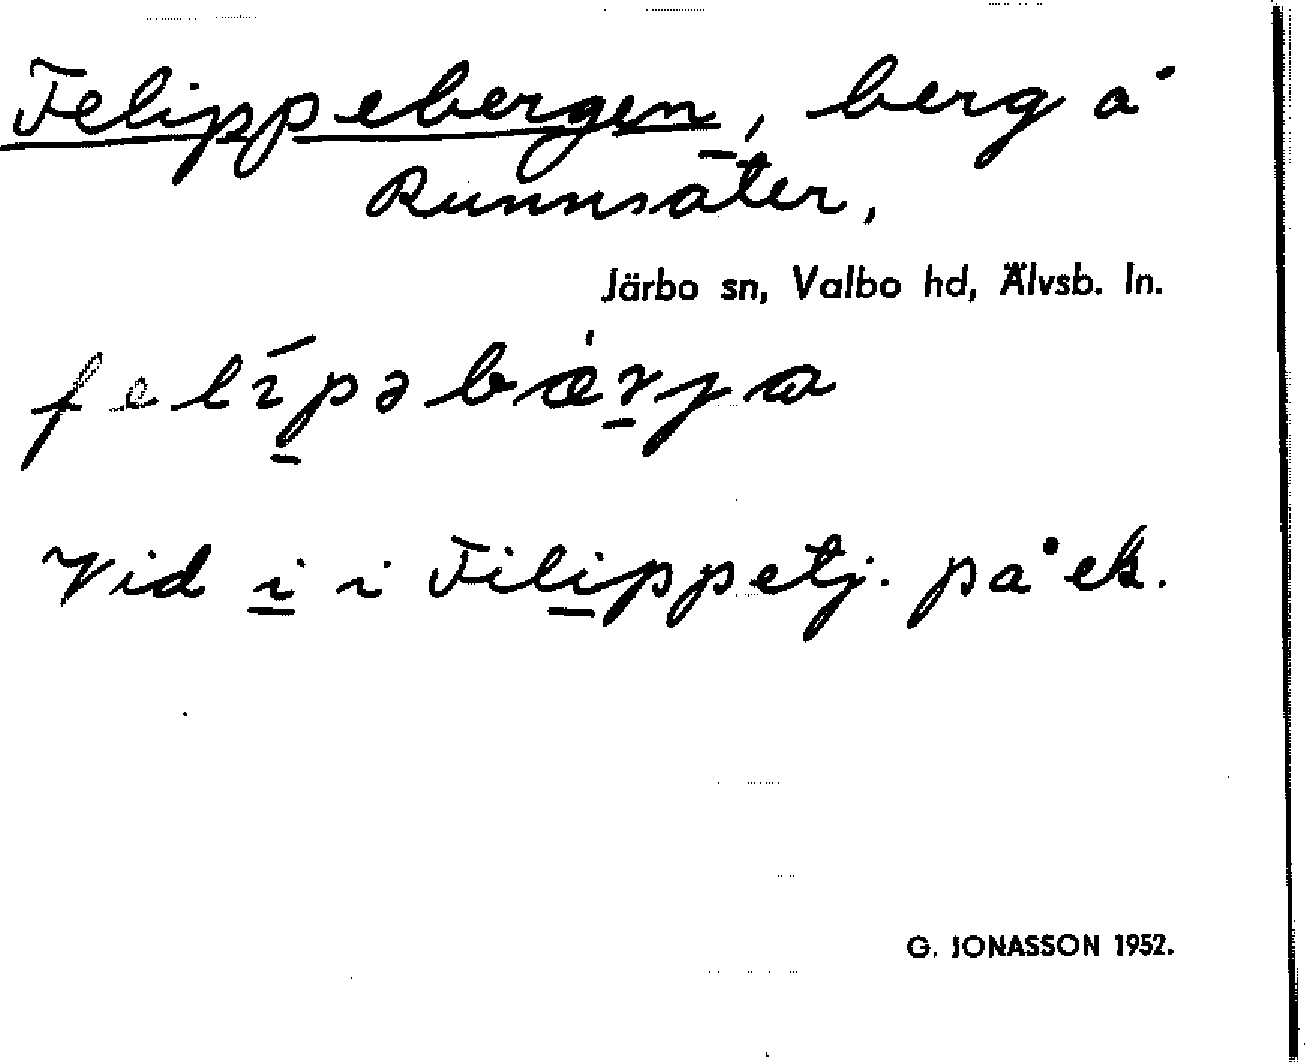 Felippebergen, berg å
Runnsäter,
Järbo sn, Valbo hd, Älvsb. ln.
felípəbæ̀rja
Vid i i Filippetj. på ek.
G. JONASSON 1952.